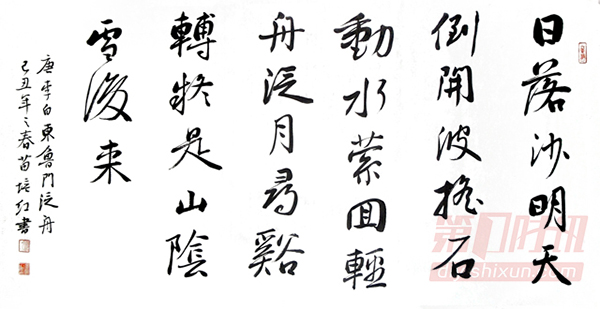 日落沙明天
倒開波搖石
動水縈回輕
舟泛月尋谿
轉疑是山陰
雪後来
唐李白東魯門泛舟
己丑年之春苗培红書
第1时讯